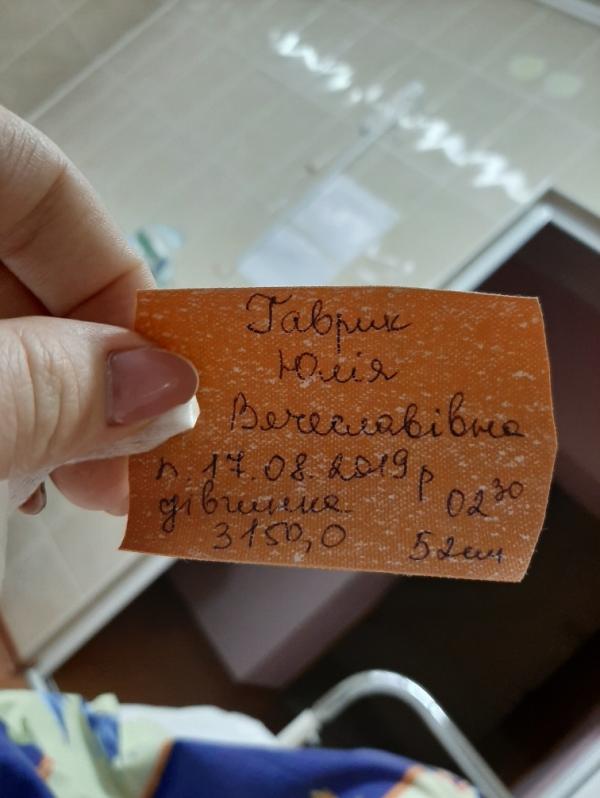 Гаврик
Юлія
Вечеславівна
п. 17.08.2019р
дівчинка 02³⁰
3150,0 52см